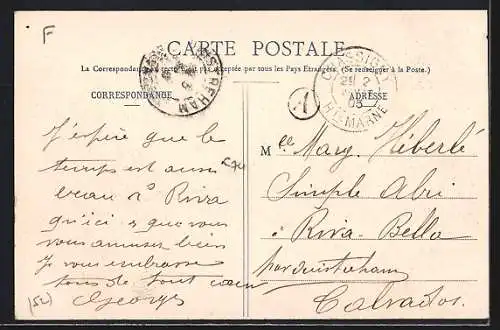 F
CARTE POSTALE
La Correspondance au recto n'est pas acceptée par tous les Pays Etrangers. (Se renseigner à la Poste.)
CORRESPONDANCE
ADRESSE
OUISTREHAM
CHASSIGNY
HTE-MARNE
J'espère que le
temps est aussi
beau à Riva
qu'ici & que vous
vous amusez bien
Je vous embrasse
tous de tout cœur
Georges
(52)
Mlle Mary Héberlé
Simple Abri
à Riva-Bella
par Ouistreham
Calvados.